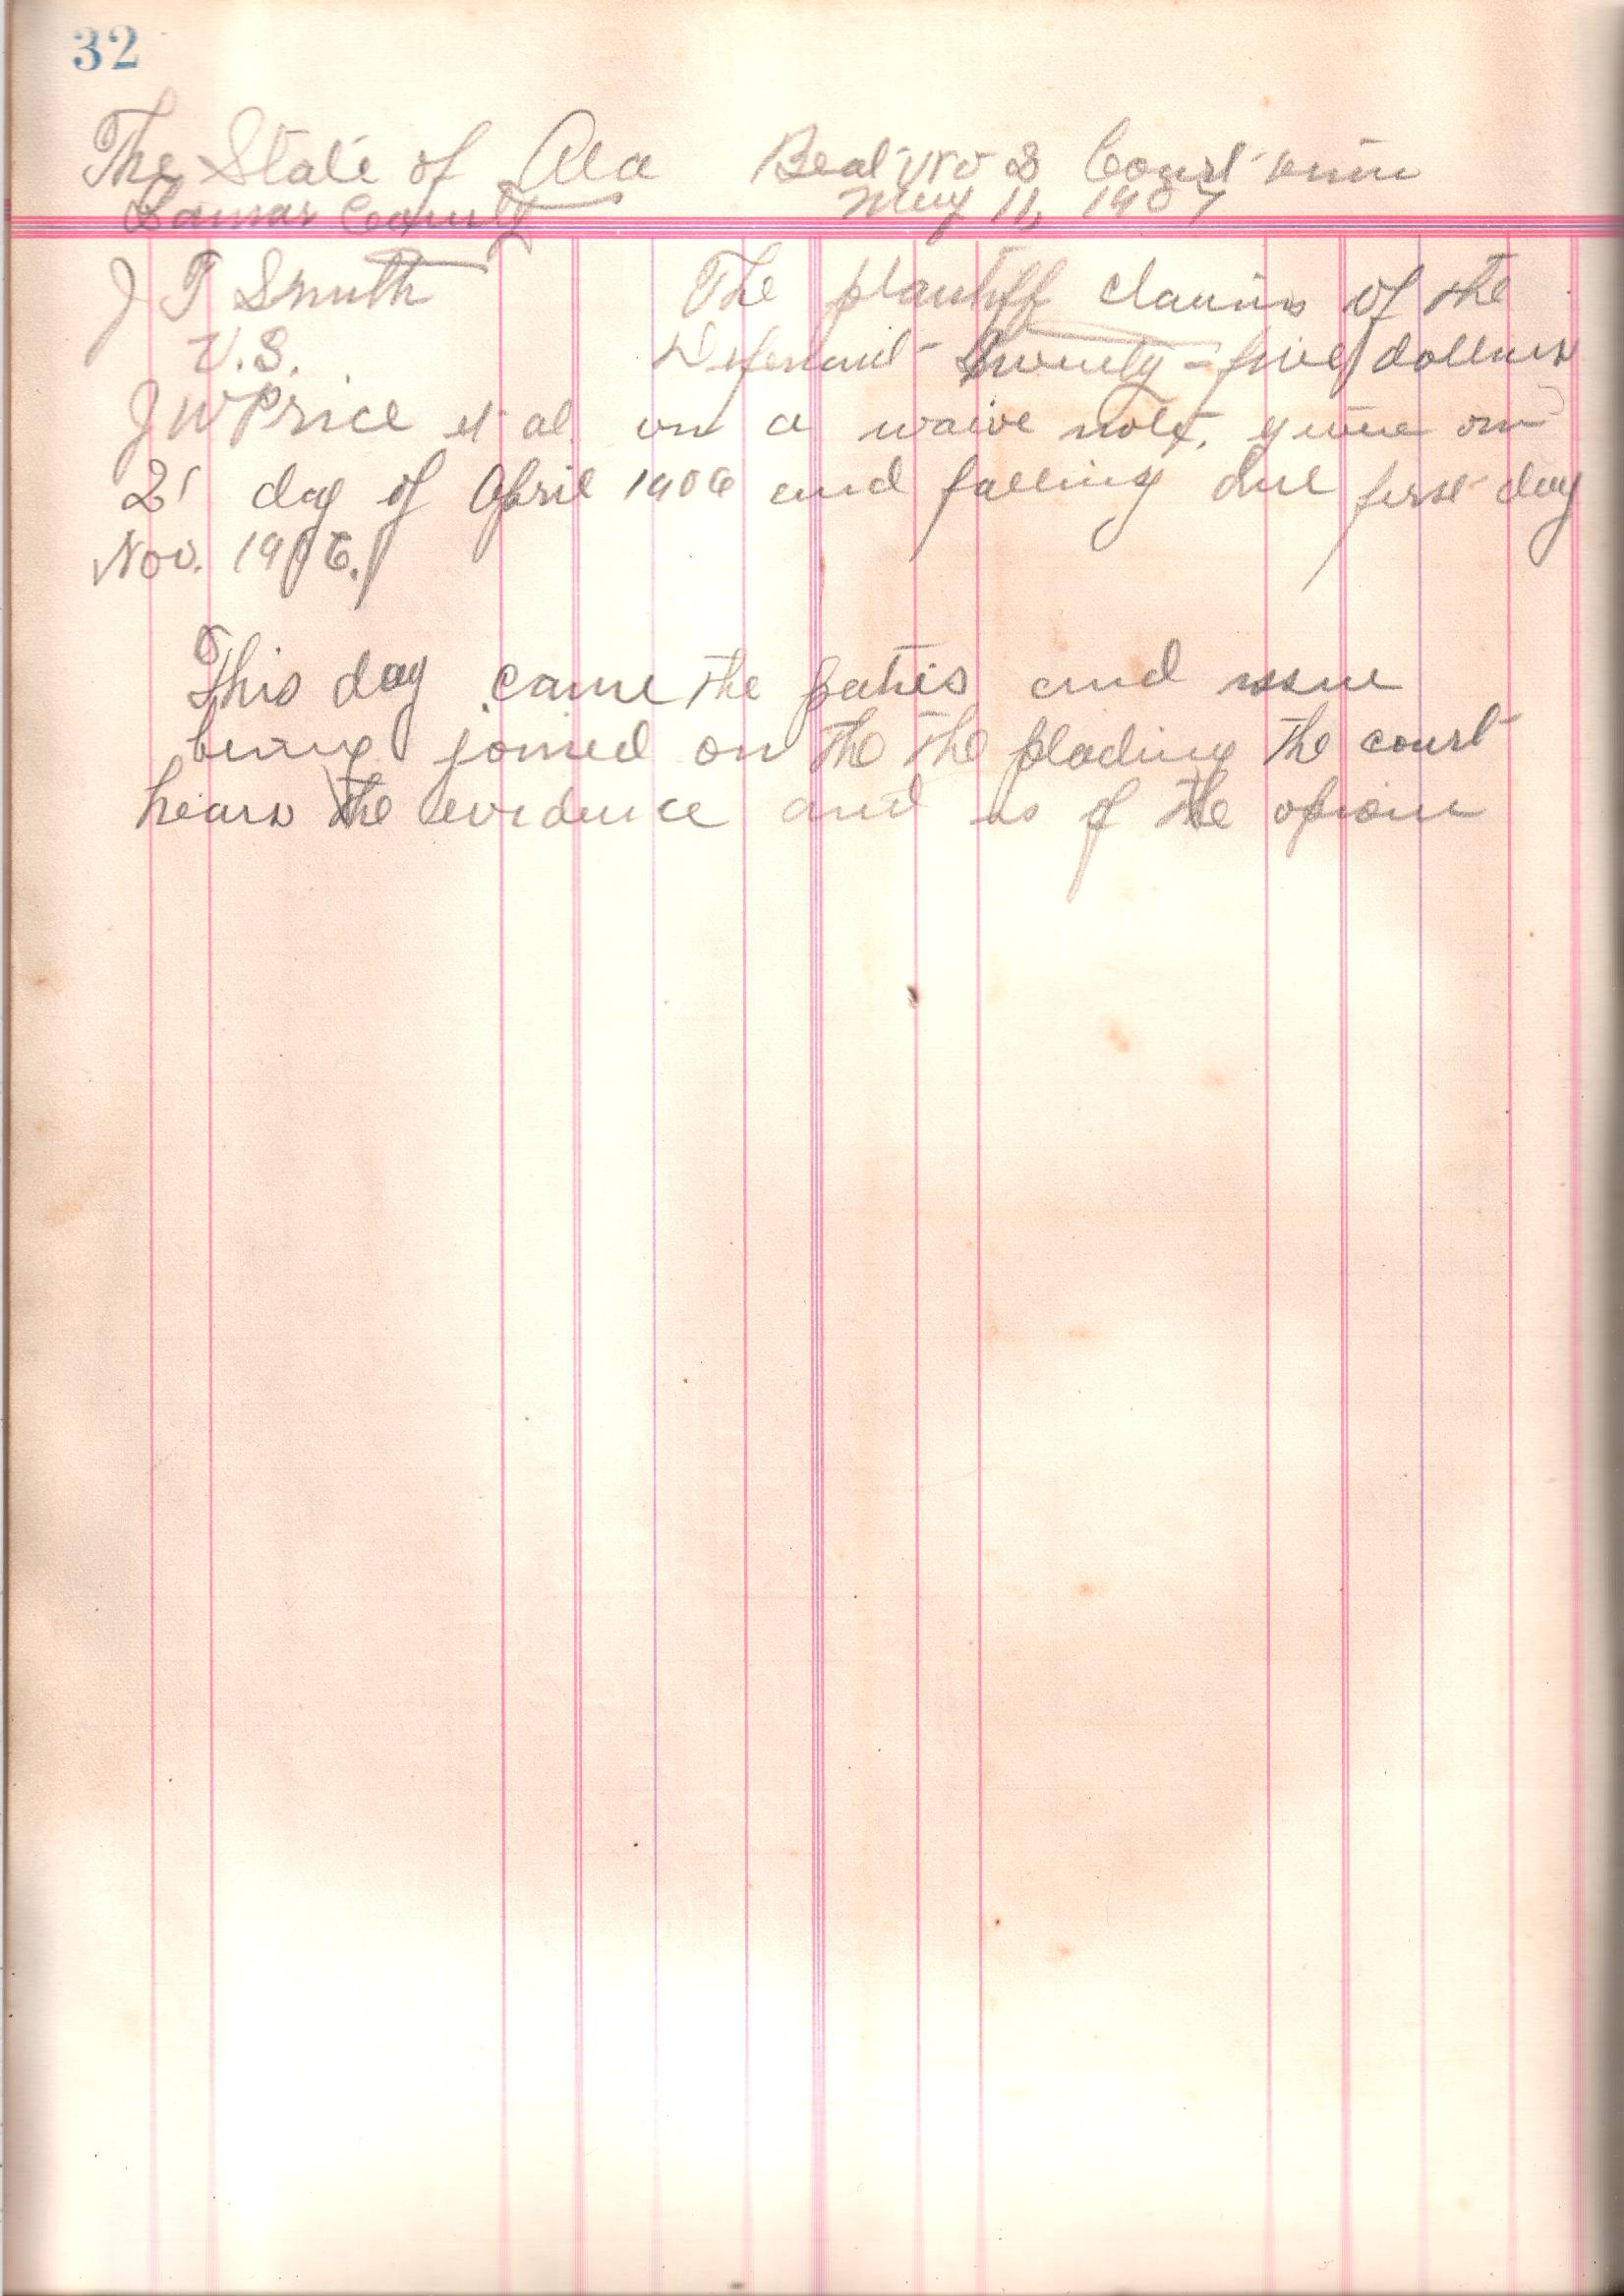 32
The State of Ala Beat No 8 Court term
Lamar County May 11, 1907
J T Smith The plantiff claims of the
V.S. Defendant Twenty-five dollars
J W Price et al. on a waive note, given on
21 day of April 1906 and falling due first day
Nov. 1906.
This day came the paties and issue
being joined on the the plading the court
hears the evidence and is of the opion